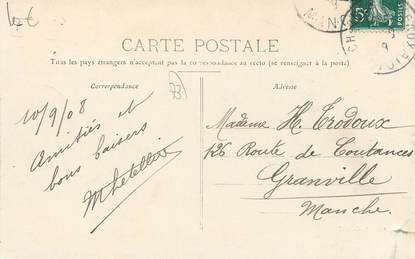 6€
5c
POSTES
CARTE POSTALE
Tous les pays étrangers n'acceptent pas la correspondance au recto (se renseigner à la poste)
Correspondance
Adresse
10/9/08
Amitiés et
bons baisers
Madame H. Trodoux
126 Route de Coutances
Granville
Manche.